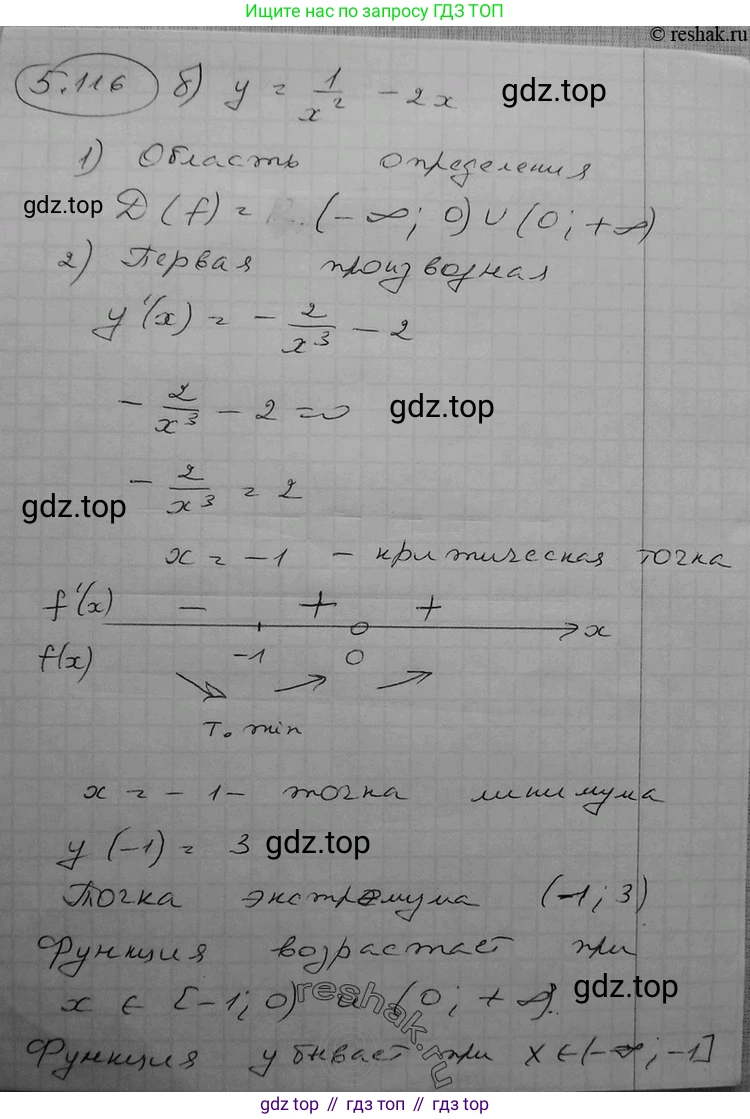 Ищите нас по запросу ГДЗ ТОП
© reshak.ru
5.116 б) y = 1/x² - 2x gdz.top
1) Область определения
gdz.top D(f) = (-∞; 0) ∪ (0; +∞)
2) Первая производная
y'(x) = - 2/x³ - 2
- 2/x³ - 2 = 0 gdz.top
gdz.top - 2/x³ = 2
x = -1 - критическая точка
f'(x) - + + x
f(x) -1 0
т. min
x = -1 - точка минимума
y(-1) = 3 gdz.top
Точка экстремума (-1; 3)
Функция возрастает при
x ∈ [-1; 0) и (0; +∞). gdz.top
reshak.ru
Функция убывает при x ∈ (-∞; -1]
gdz.top // gdz.top // gdz.top